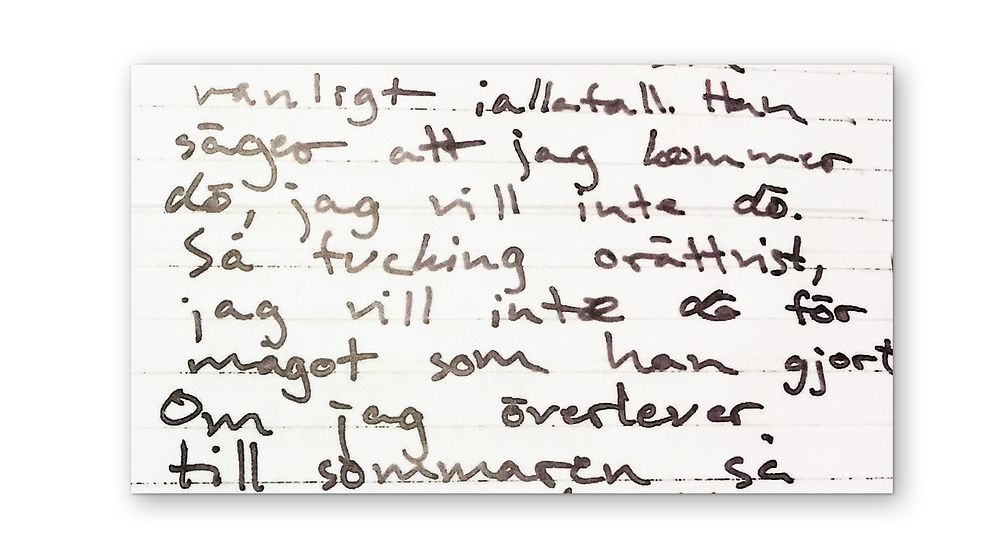 vanligt iallafall. Han
säger att jag kommer
dö, jag vill inte dö.
Så fucking orättvist,
jag vill inte dö för
något som han gjort
Om jag överlever
till sommaren så